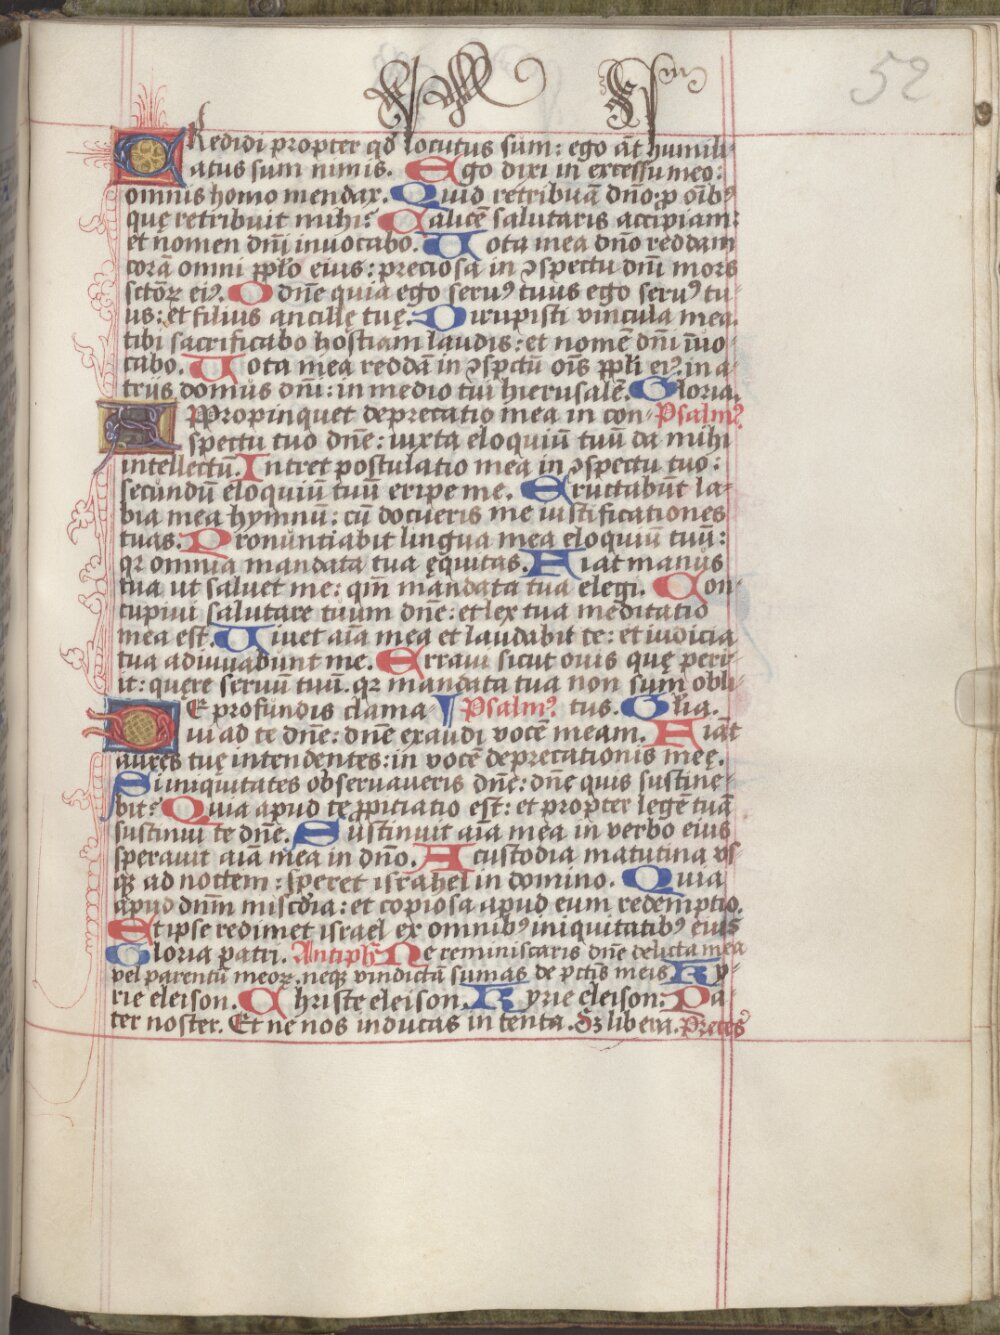 52
CRedidi propter qd locutus sum: ego āt humili-
atus sum nimis. Ego dixi in excessu meo:
omnis homo mendax. Quid retribuā dn̄o: p oīb9
quę retribuit mihi? Calicē salutaris accipiam:
et nomen dn̄i inuocabo. Uota mea dn̄o reddam
corā omni pplo eius: preciosa in ꝯspectu dn̄i mors
sctōꝝ ei9. O dn̄e quia ego seru9 tuus ego seru9 tu-
us: et filius ancillę tuę. Dirupisti vincula mea.
tibi sacrificabo hostiam laudis: et nomē dn̄i īuo
cabo. Uota mea reddā in ꝯspctū oīs ppli ei9: in a
triis domus dn̄i: in medio tui hierusalē. Gloria.
APPropinquet deprecatio mea in con- Psalm9
spectu tuo dn̄e: iuxta eloquiū tuū da mihi
intellectū. Intret postulatio mea in ꝯspectu tuo:
secundū eloquiū tuū eripe me. Eructabūt la-
bia mea hymnū: cū docueris me iustificationes
tuas. Pronūntiabit lingua mea eloquiū tuū:
qꝛ omnia mandata tua ęquitas. Fiat manus
tua ut saluet me: qm̄ mandata tua elegi. Con-
cupiui salutare tuum dn̄e: et lex tua meditatio
mea est. Uiuet aīa mea et laudabit te: et iudicia
tua adiuuabunt me. Erraui sicut ouis quę peri-
it: quere seruū tuū. qꝛ mandata tua non sum obli-
DE profundis clama- Psalm9 tus. Glīa.
ui ad te dn̄e: dn̄e exaudi vocē meam. Fiāt
aures tuę intendentes: in vocē deprecationis meę.
Si iniquitates obseruaueris dn̄e: dn̄e quis sustine-
bit? Quia apud te ppiciatio est: et propter legē tuā
sustinui te dn̄e. Sustinuit aīa mea in verbo eius
sperauit aīa mea in dn̄o. A custodia matutina vs
qꝫ ad noctem: speret israhel in domino. Quia
apud dn̄m mīscdīa: et copiosa apud eum redemptio.
Et ipse redimet israel ex omnib9 iniquitatib9 eius
Gloria patri. Antiph̄ Ne reminiscaris dn̄e delicta mea
vel parentū meoꝝ. neqꝫ vindictā sumas de pctīs meis. Ky-
rie eleison. Christe eleison. Kyrie eleison: Pa-
ter noster. Et ne nos inducas in tenta. Sꝫ libera. Preces